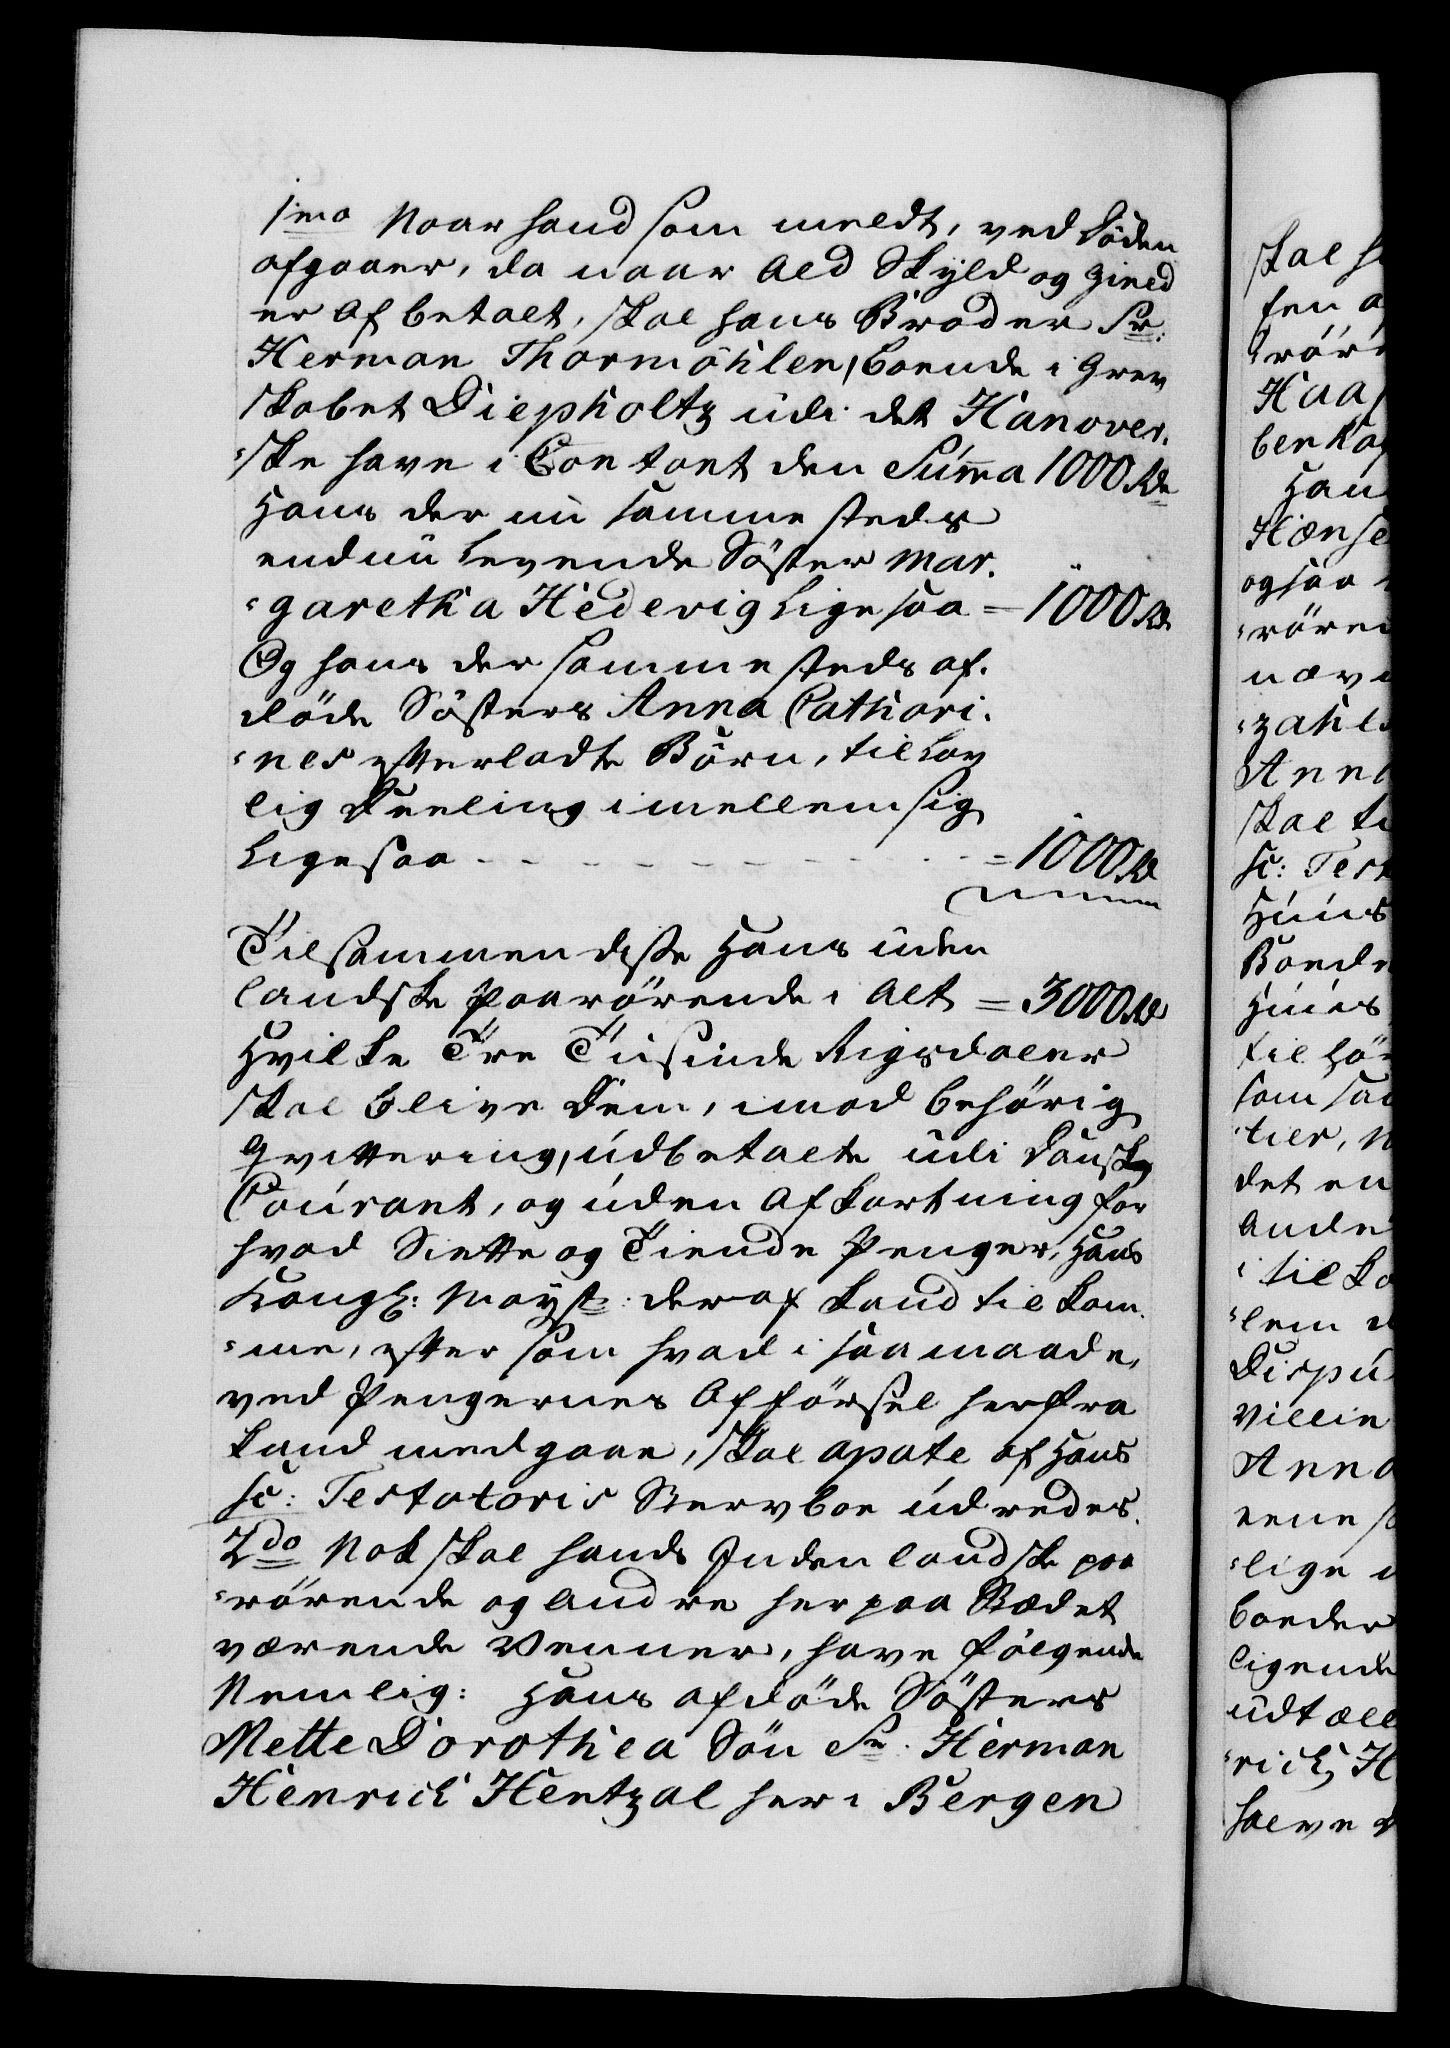 1mo Naar hand som meldt, ved Döden
afgaaer, da naar Ald Skyld og Gield
er Afbetalt, skal hans Broder Sr:
Herman Thormöhlen, boende i Grev
skabet Diepholtz udi det Hanover-
-ske have i Contant den Summa 1000 Rd
Hans der nu sammesteds
endnu levende Söster Mar-
-garetha Hedevig ligesaa = 1000 Rd
Og hans der sammesteds af-
döde Sösters Anna Cathari-
-nes efterladte Börn, til Lov
lig Deeling imellem sig
ligesaa - - - - - - - - - = 1000 Rd
Tilsammen disse Hans uden
landske Paarörende i Alt = 3000 Rd
Hvilke Tre Tusinde Rigsdaler
skal blive Dem, imod behörig
Qvittering, udbetalte udi Dansk
Courant, og uden Afkortning for
hvad Siette og Tiende Penger, Hans
Kongl: Mayst: deraf kand tilkom-
-me, efter som hvad i saa maade,
ved Pengernes Afförsel herfra
kand medgaae, skal aparte af Hans
sc: Testatoris Sterboe udredes.
2do Nok skal hands Indenlandske paa
-rörende og andre her paa Stædet
værende Venner, have fölgende
Nemlig: Hans afdöde Sösters
Mette Dorothea Sön Sr. Herman
Henrich Hentzal her i Bergen
skal h
fen a
rör
Haa
benha
Han
Hense
ogsaa
-röre
næv
-zahl
Anna
skal ti
sc: Test
Huus
Boede
Huus
tilhö
som saa
det en
Ande
i tilko
-lem
Dispu
villie
Anna
eene s
-lige
boeder
ligende
udtæll
-rich H
halve